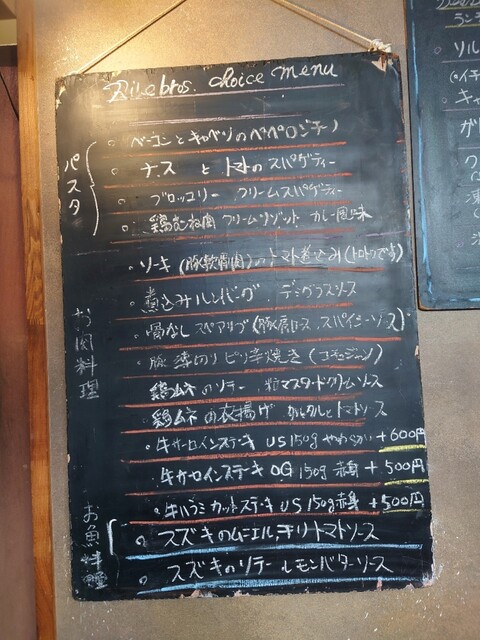 choice menu
パスタ
・ベーコンとキャベツのペペロンチーノ
・ナス と トマトのスパゲティー
・ブロッコリー クリームスパゲティー
・鶏むね肉 クリームリゾット カレー風味
・ソーキ (豚軟骨肉)のトマト煮込み(トロトロです)
お肉料理
・煮込みハンバーグ デミグラスソース
・骨なし スペアリブ (豚肩ロース スパイシーソース)
・豚 薄切り ピリ辛焼き (コチュジャン)
鶏ムネ のソテー 粒マスタードクリームソース
鶏ムネ の衣揚げ タルタルとトマトソース
・牛サーロインステーキ US 150g やわらかい +600円
牛サーロインステーキ OG 150g 赤身 +500円
・牛ハラミカットステーキ US 150g赤身 +500円
お魚料理
・スズキのムニエル チリトマトソース
・スズキのソテー レモンバターソース
ソル
キャ
ガリ